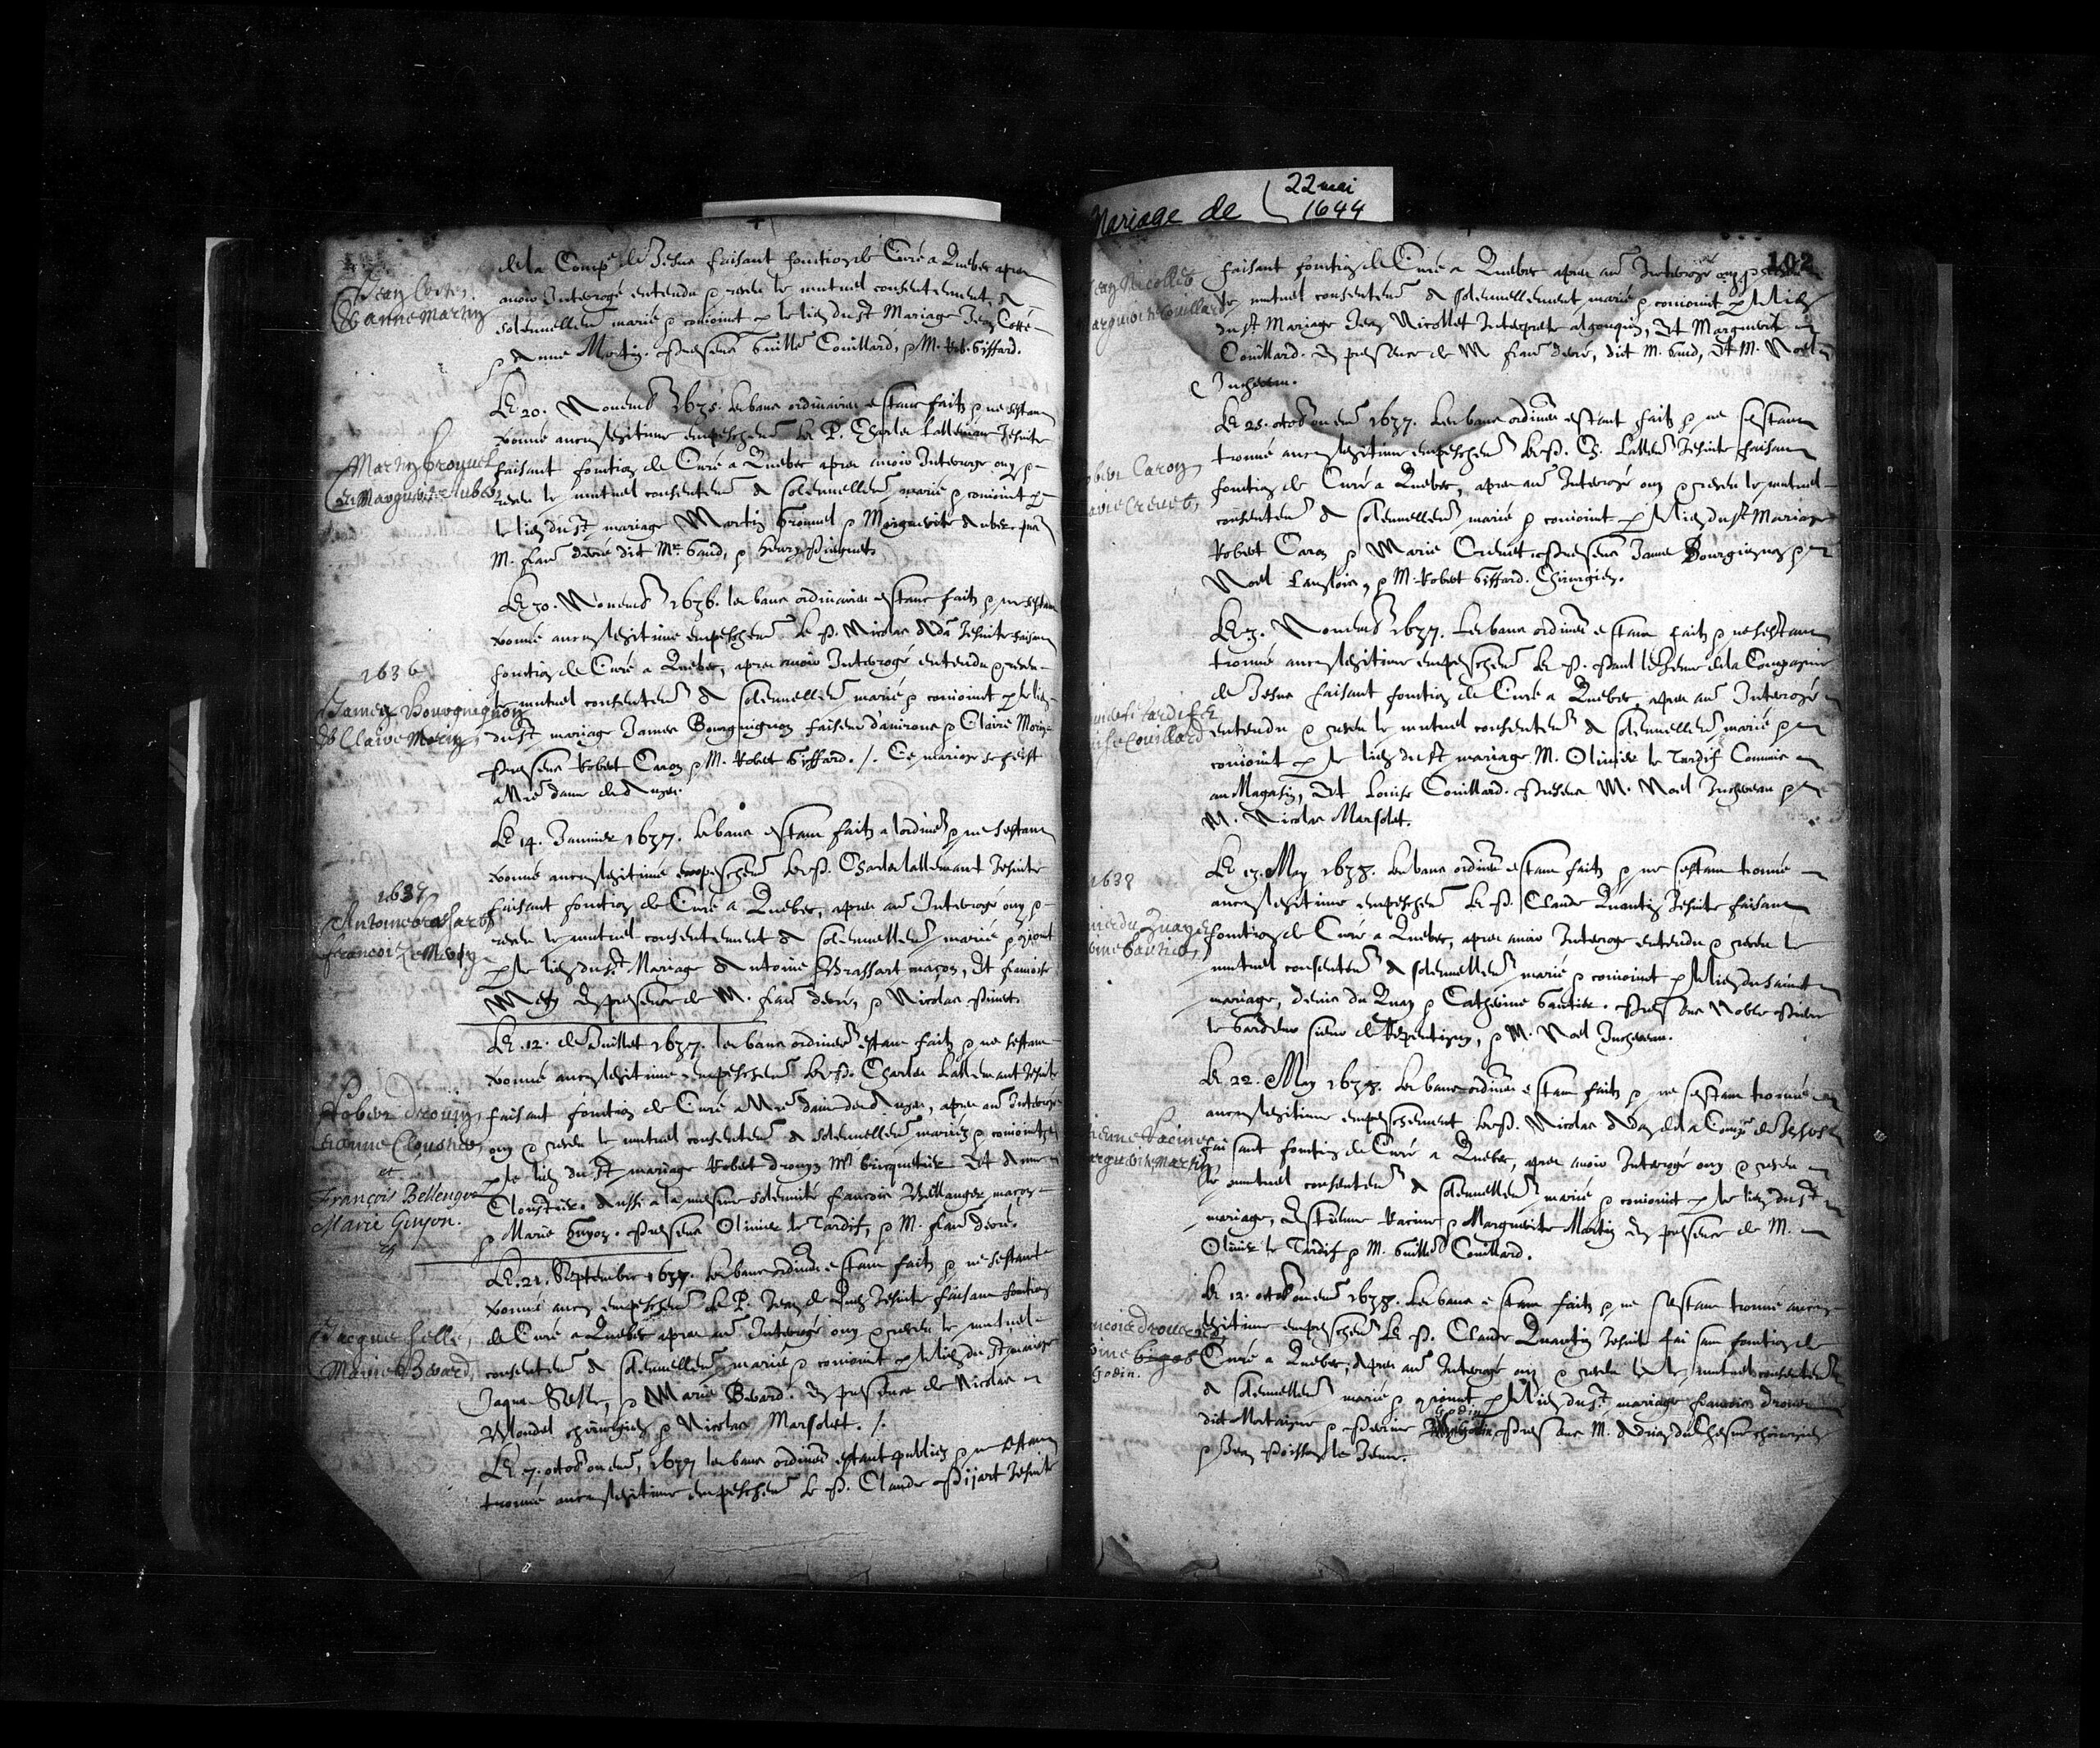 Mariage de { 22 mai
1644
102
Jean Costé.
& anne Martin
de la Comp.e de Jesus faisant fonction de Curé a Quebec apres
avoir Interrogé entendu & receu le mutuel consentement, a
solennellem marié & conioint p le lien du st Mariage Jean Cotté
& Anne Martin. Presens Guille Couillard, & M. Rob. Giffard.
Martin Grouuel
Marguerite Aubert
Le 20. Novemb 1635. les bans ordinaires estans faits & ne sestant
trouvé aucun legitime empeschem le P. Charles Lallemant Jesuite
faisant fonction de Curé a Quebec apres avoir Interrogé ouy &
receu le mutuel consentem a solennellem marié & conioint p
le lien du st mariage Martin Grouuel & Marguerite Aubert
M. Fran deré dit Mr Gand, & Henry Pinguet
1636
Jamen Bourguignon
& Claire Morin,
Le 30. Novemb 1636. les bans ordinaires estans faits & ne sestant
trouvé aucun legitime empeschem le P. Nicolas Ada Jesuite faisant
fonction de Curé a Quebec, apres avoir Interrogé entendu & receu
le mutuel consentem a solennellem marié & conioint p le lien
du st mariage Jamen Bourguignon faiseur davirons & Claire Morin
Presens Robert Caron & M. Robert Giffard. /. Ce mariage se feist
a Nre dame des Anges.
1637
Antoine brassart
francoize Mery
Le 14. Janvier 1637. les bans estans faits a lordinre & ne sestant
trouvé aucun legitime empeschem le P. Charles lallemant Jesuite
faisant fonction de Curé a Quebec, apres av Interrogé ouy &
receu le mutuel consentement a solennellem marié & coioint
p le lien du st Mariage Antoine Brassart maçon, Et francoise
Mery En presence de M. Fran deré, & Nicolas Pinel
Robert Drouin,
& anne Cloustier
et
François Bellenger
Marie Guyon.
Le 12. de Juillet 1637. les bans ordinres estans faits & ne sestant
trouvé aucun legitime empeschem le P. Charles Lallemant Jesuite
faisant fonction de Curé a Nre dame des Anges, apres av Interrogé
ouy & receu le mutuel consentem a solennellem mariez & conioints
p le lien du st mariage Robert drouyn Mr bricquetier Et Anne
Cloustier. Aussi a la mesme solemnité francois Bellanger maçon
& Marie Guyon. Presens Olivier le Tardif, & M. Fran deré.
Jacques Selle,
Marie Bevard,
Le 21. September 1637. les bans ordinres estans faits & ne sestant
trouvé aucun empeschem le P. Jean de Quen Jesuite faisant fonction
de Curé a Quebec apres av Interrogé ouy & receu le mutuel
consentem a solennellem marié & conioint p le lien du st mariage
Jaques Selle, & Marie Bevard. En presence de Nicolas
Blondel chirurgien & Nicolas Marsolet. /.
Le 7. octob 1637 les bans ordinres estant publiez & ne sestant
trouvé aucun legitime empeschem le P. Claude Pijart Jesuite
Jean Nicollet
Marguerite Couillard
faisant fonction de Curé a Quebec apres av Interrogé ouy &
le mutuel consentem a solennellement marié & conioint p le lien
du st Mariage Jean Nicollet Interprete algonquin, Et Marguerite
Couillard. En presence de M fran deré, dit M. Gand, Et M. Noel
Juchereau.
Caron
Crevet,
Le 25. octob 1637. les bans ordinres estant faits & ne sestant
trouvé aucun legitime empeschem le P. Ch. Lallem Jesuite faisant
fonction de Curé a Quebec, apres av Interrogé ouy & receu le mutuel
consentem a solennellem marié & conioint p le lien du st Mariage
Robert Caron & Marie Crevet. Presens Jamen Bourguignon &
Noel Langlois, & M. Robert Giffard. Chirurgien.
le tardif &
Couillard
Le 3. Novemb 1637. les bans ordinres estans faits & ne sestant
trouvé aucun legitime empeschem le P. Paul le Jeune de la Compagnie
de Jesus faisant fonction de Curé a Quebec apres av Interrogé
entendu & receu le mutuel consentem a solennellem marié &
conioint p le lien du st mariage M. Olivier le Tardif Commis
au Magasin, Et Louise Couillard. Presens M. Noel Juchereau &
M. Nicolas Marsolet.
1638
du Quay &
Gautier,
Le 13. May 1638. les bans ordinres estans faits & ne sestant trouvé
aucun legitime empeschem le P. Claude Quantin Jesuite faisant
fonction de Curé a Quebec, apres avoir Interrogé entendu & receu le
mutuel consentem a solennellem marié & conioint p le lien du saint
mariage, denis du Quay & Catherine Gautier. Presens Noble
le Gardeur sieur de Repentigny, & M. Noel Juchereau.
Racine
Marguerite Martin
Le 22. May 1638. les bans ordinres estans faits & ne sestant trouvé
aucun legitime empeschement le P. Nicolas Adan de la Comp. de Jesus
faisant fonction de Curé a Quebec, apres avoir Interrogé ouy & receu
le mutuel consentem a solennellem marié & conioint p le lien du st
mariage, Estienne Racine & Marguerite Martin En presence de M.
Olivier le Tardif & M. Guille Couillard.
Drouet
bigot
Godin.
Le 12. octob 1638. les bans estans faits & ne sestant trouvé aucun
legitime empeschem le P. Claude Quantin Jesuite faisant fonction de
Curé a Quebec; Apres av Interrogé ouy & receu le mutuel consentem
a solennellem marié & coioint p le lien du st mariage francois drouet
Godin
dict Mortaigne & Perrine Presens M. Adrien du Chesne chirurgien
& Jean Poisson le Jeune.